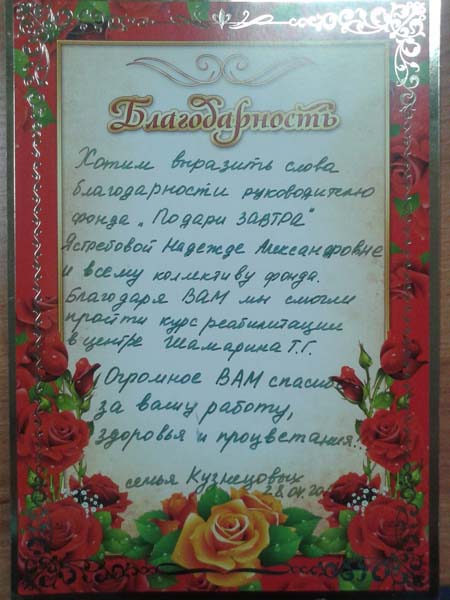 Благодарность
Хотим выразить слова
благодарности руководителю
фонда „Подари ЗАВТРА"
Ястребовой Надежде Александровне
и всему коллективу фонда.
Благодаря ВАМ мы смогли
пройти курс реабилитации
в центре Шамарина Т.Г.
Огромное ВАМ спасибо
за вашу работу,
здоровья и процветания!
семья Кузнецовых
28.04.